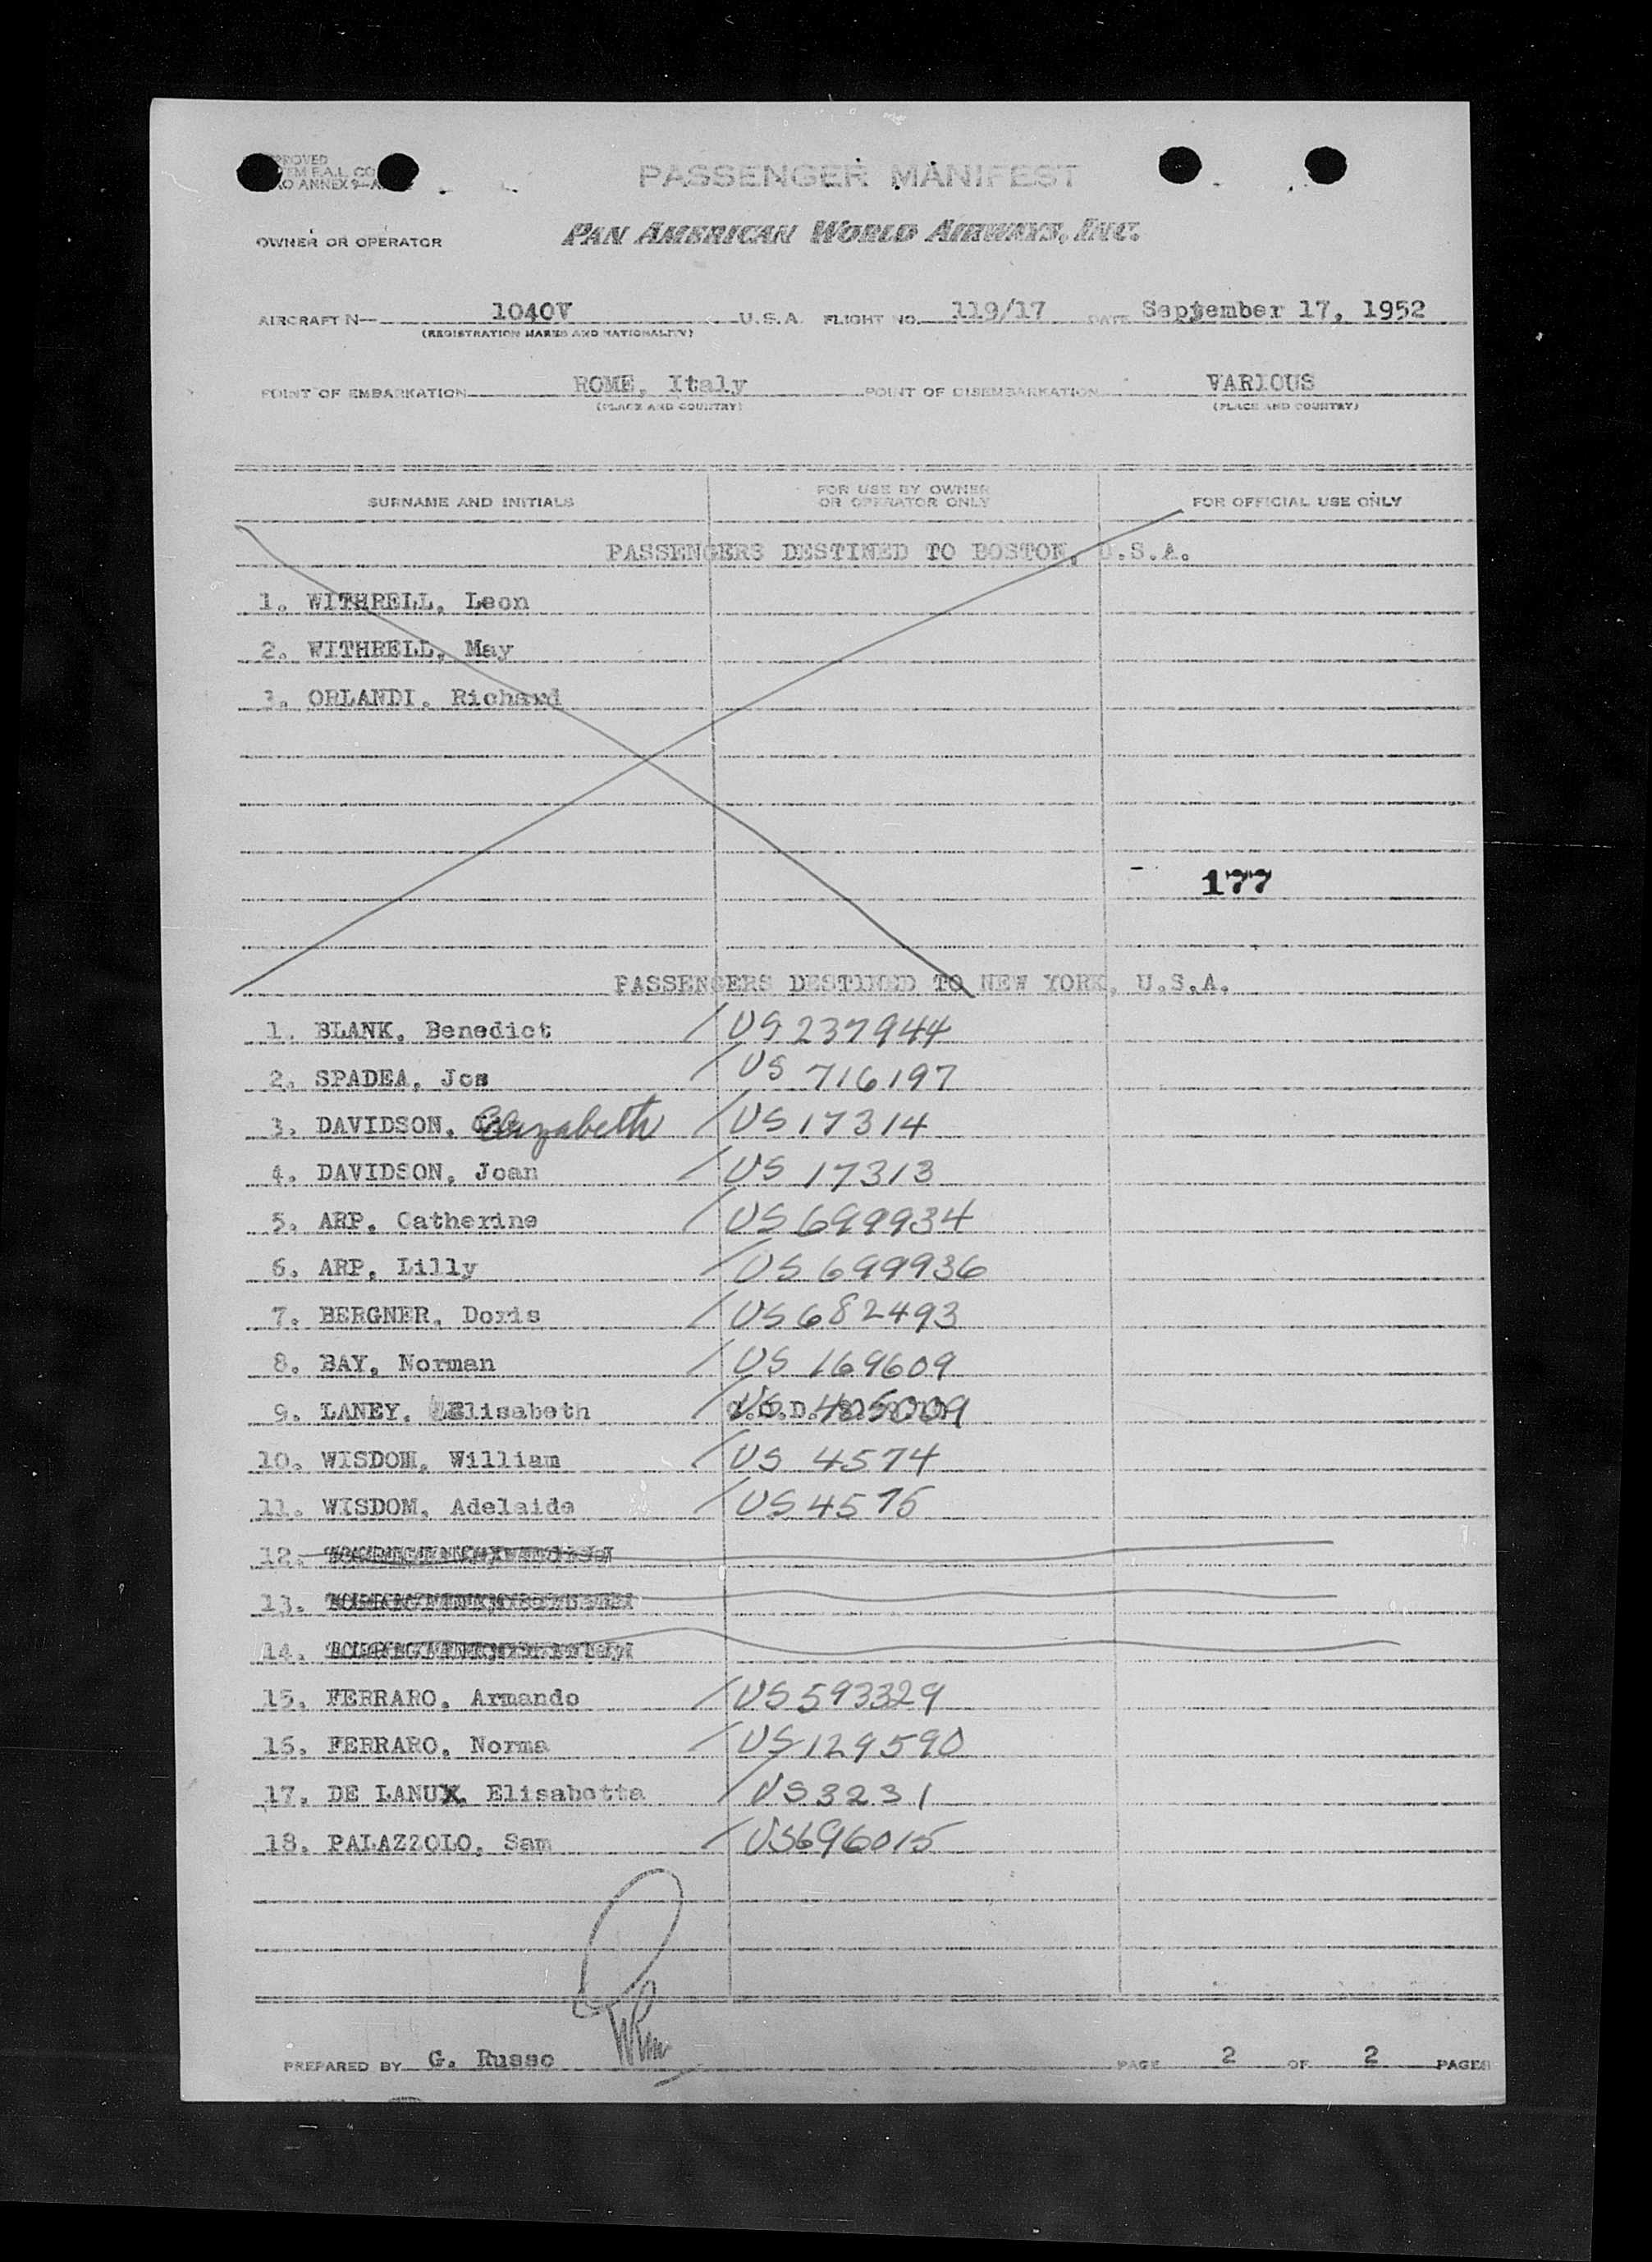 PROVED
TEM F.A.L. CO
AO ANNEX 9—A
PASSENGER MANIFEST
OWNER OR OPERATOR PAN AMERICAN WORLD AIRWAYS, INC.
AIRCRAFT N— 1040V U.S.A. FLIGHT NO. 119/17 DATE September 17, 1952
(REGISTRATION MARKS AND NATIONALITY)
POINT OF EMBARKATION ROME, Italy POINT OF DISEMBARKATION VARIOUS
(PLACE AND COUNTRY) (PLACE AND COUNTRY)
SURNAME AND INITIALS FOR USE BY OWNER OR OPERATOR ONLY FOR OFFICIAL USE ONLY
PASSENGERS DESTINED TO BOSTON, U.S.A.
1. WITHRELL, Leon
2. WITHRELL, May
3. ORLANDI, Richard
177
PASSENGERS DESTINED TO NEW YORK, U.S.A.
1. BLANK, Benedict / US 237944
2. SPADEA, Jos / US 716197
3. DAVIDSON, Elizabeth / US 17314
4. DAVIDSON, Joan / US 17313
5. ARP, Catherine / US 699934
6. ARP, Lilly / US 699936
7. BERGNER, Doris / US 682493
8. BAY, Norman / US 169609
9. LANEY, Elisabeth / US 405009
10. WISDOM, William / US 4574
11. WISDOM, Adelaide / US 4575
12.
13.
14.
15. FERRARO, Armando / US 593329
16. FERRARO, Norma / US 129590
17. DE LANUX, Elisabetta / US 3231
18. PALAZZOLO, Sam / US 696015
PREPARED BY G. Russo PAGE 2 OF 2 PAGES